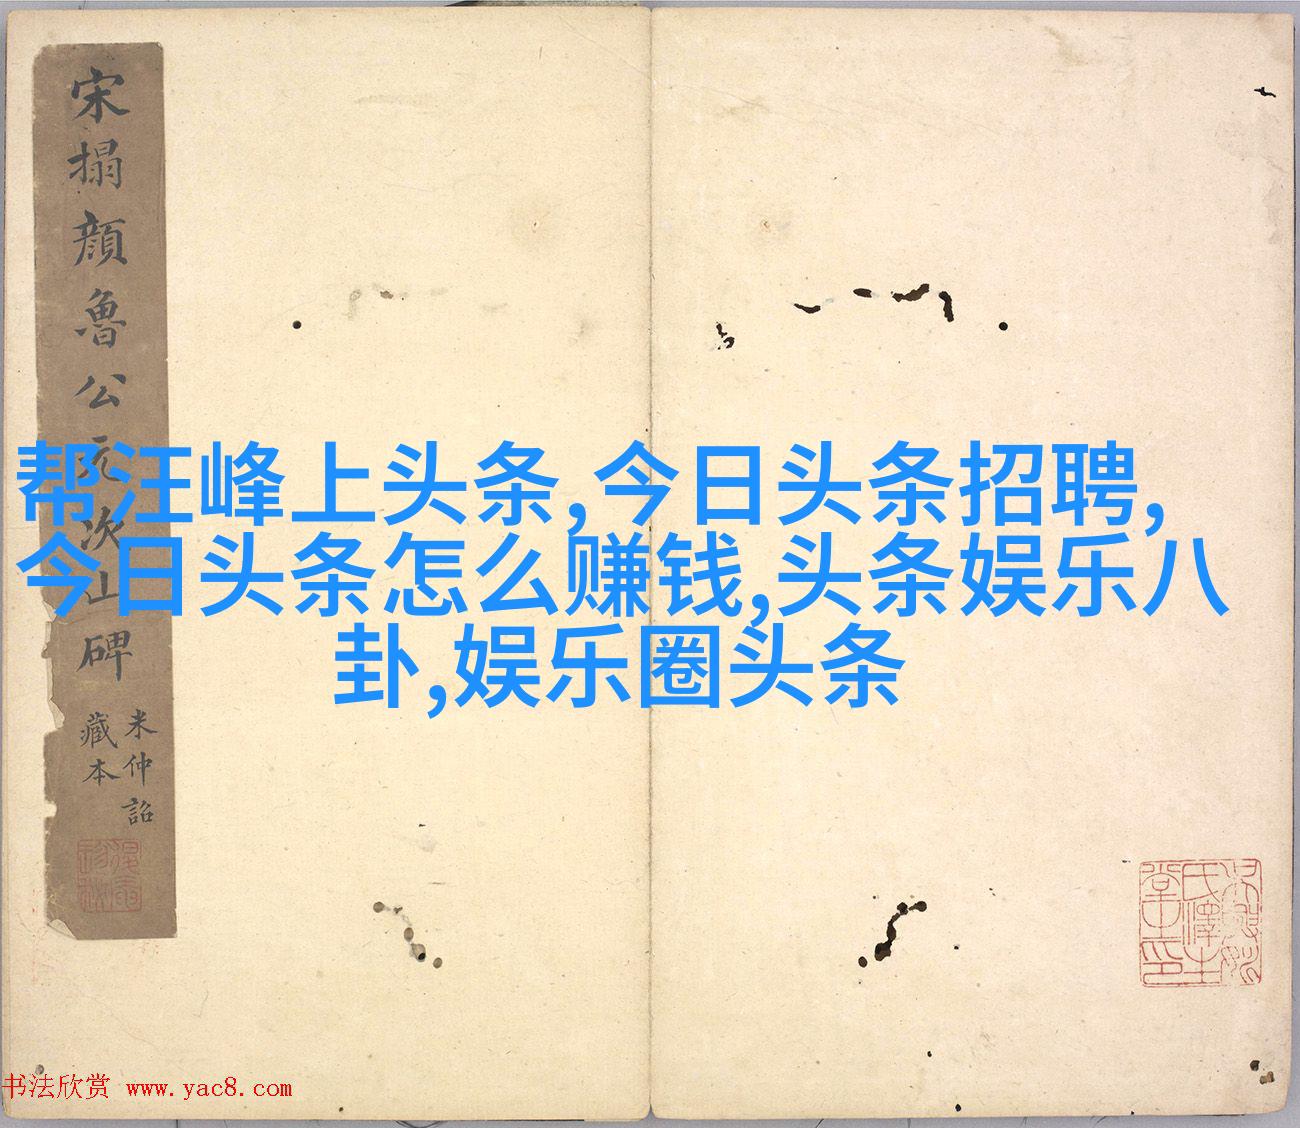 宋搨顔魯公元次山碑
米仲詔
藏本
帮汪峰上头条,今日头条招聘,
今日头条怎么赚钱,头条娱乐八
卦,娱乐圈头条
书法欣赏 www.yac8.com